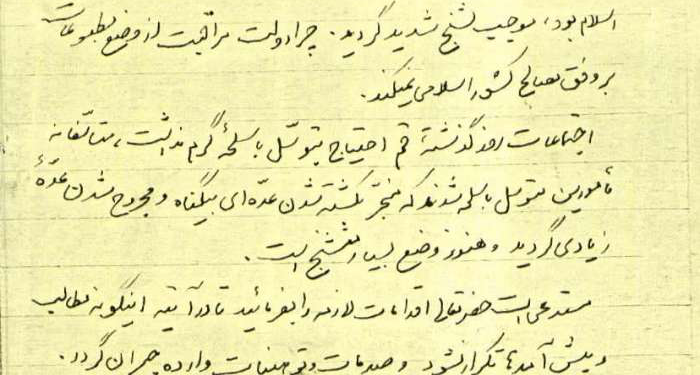 السلام بود، موجب تشنج شدید گردید. چرا دولت مراقبت از وضع مطبوعات
بر وفق مصالح کشور اسلامی نمیکند.
اجتماعات روز گذشتهٔ قم احتیاج بتوسّل باسلحهٔ گرم نداشت، متأسّفانه
مأمورین متوسل باسلحه شدند که منجرّ بکشته شدن عدّه‌ای بیگناه و مجروح شدن عدّهٔ
زیادی گردید و هنوز وضع بسیار متشنج است.
مستدعی است حضرتعالی اقدامات لازمه را بفرمائید تا در آتیه اینگونه مطالب
و پیش‌آمدها تکرار نشود و صدمات و توهینات وارده جبران گردد.